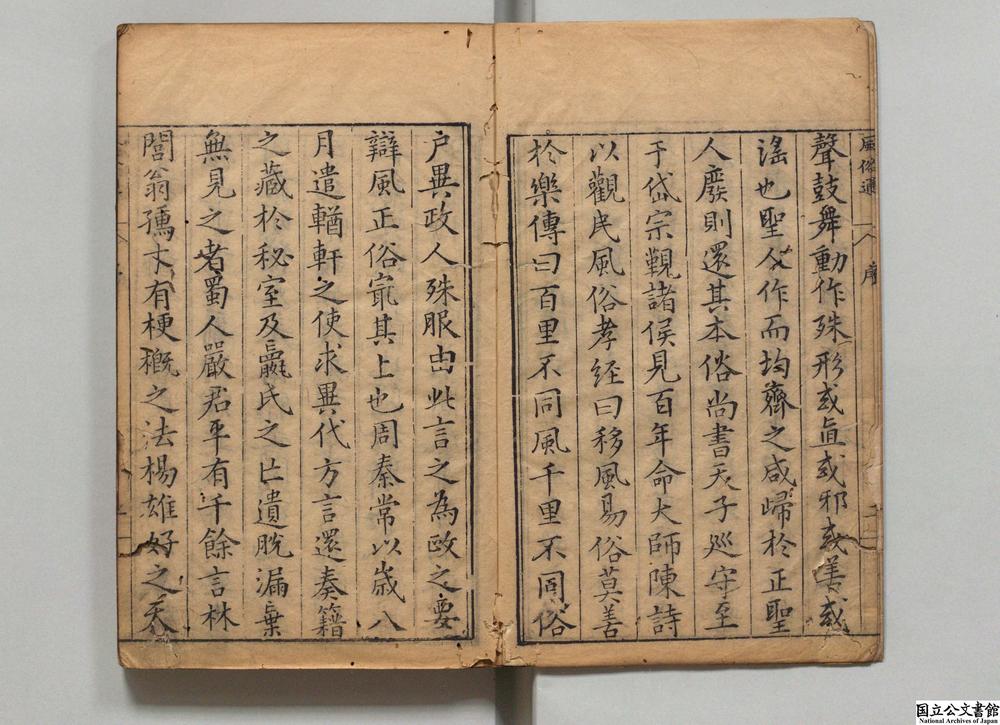 風俗通 序
聲鼓舞動作殊形或直或邪或善或
滛也聖人作而均齊之咸歸於正聖
人廢則還其本俗尚書天子廵守至
于岱宗覲諸侯見百年命大師陳詩
以觀民風俗孝經曰移風易俗莫善
於樂傳曰百里不同風千里不同俗
户異政人殊服由此言之為政之要
辯風正俗冣其上也周秦常以歳八
月遣輶軒之使求異代方言還奏籍
之藏於秘室及嬴氏之亡遺脱漏棄
無見之者蜀人嚴君平有千餘言林
閭翁孺才有梗概之法楊雄好之天
国立公文書館
National Archives of Japan